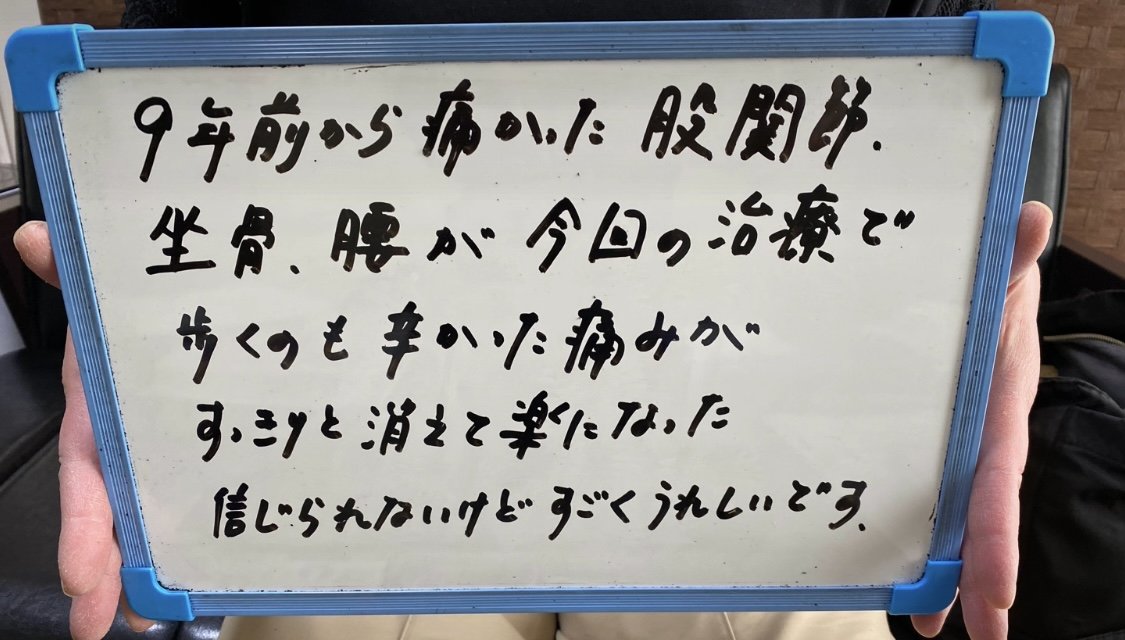 9年前から痛かった股関節、
坐骨、腰が今回の治療で
歩くのも辛かった痛みが
すっきりと消えて楽になった
信じられないけどすごくうれしいです。